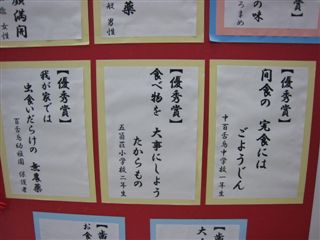 顔満開
性 女性
薬
般 男性
賞】
の味
ろまめ
【優秀賞】
間食の 完食には
ごようじん
十百舌鳥中学校一年生
【優秀賞】
食べ物を 大事にしよう
たからもの
五箇荘小学校二年生
【優秀賞】
我が家では
虫食いだらけの 無農薬
百舌鳥幼稚園 保護者
大
【歯
お食